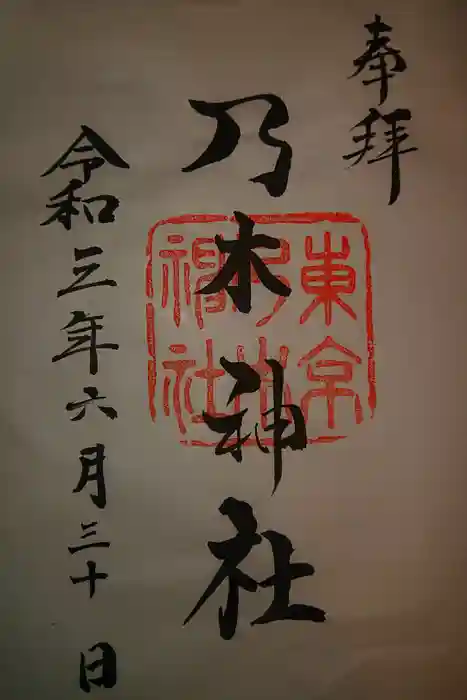 奉拝
東京
乃木
神社
乃木神社
令和三年六月三十日